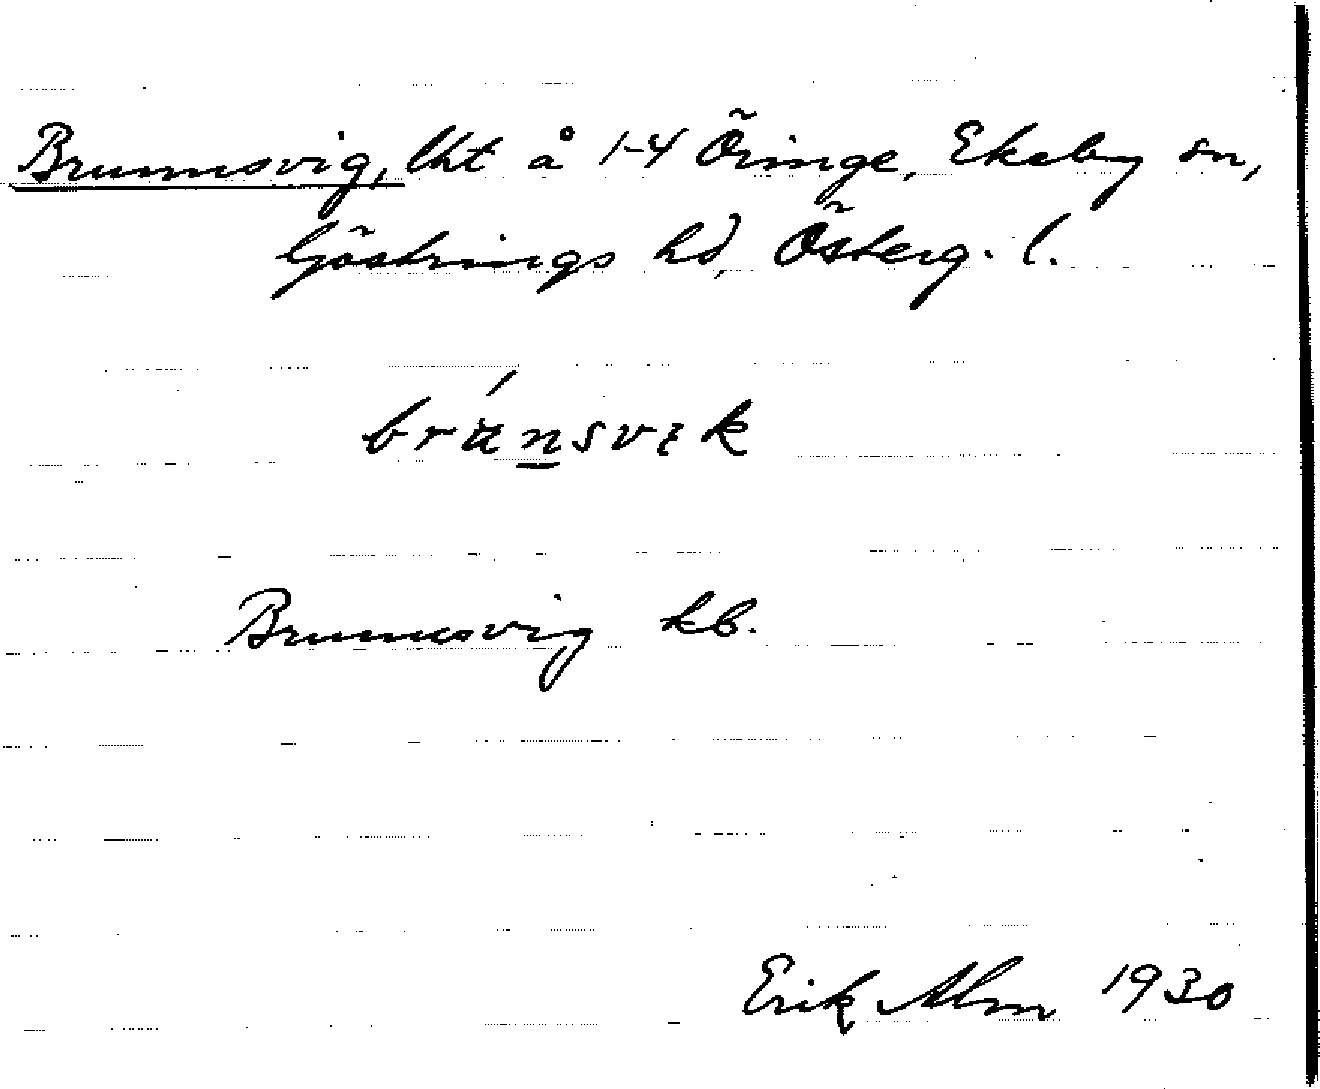 Brunnsvig, lht å 1-4 Öringe, Ekeby sn,
Göstrings hd, Österg. l.
bránsvik
Brunnsvig kb.
Erik Alm 1930